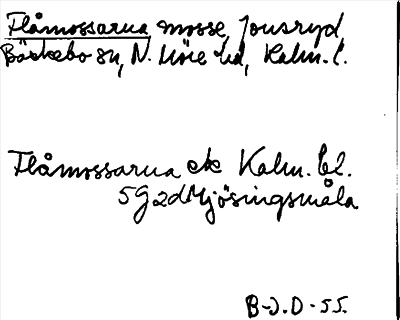 Flåmossarna mosse, Jonsryd,
Bäckebo sn, N. Möre hd, Kalm. l.
Flåmossarna ek Kalm. bl.
5G2d Mjösingsmåla
B-J.D-55.